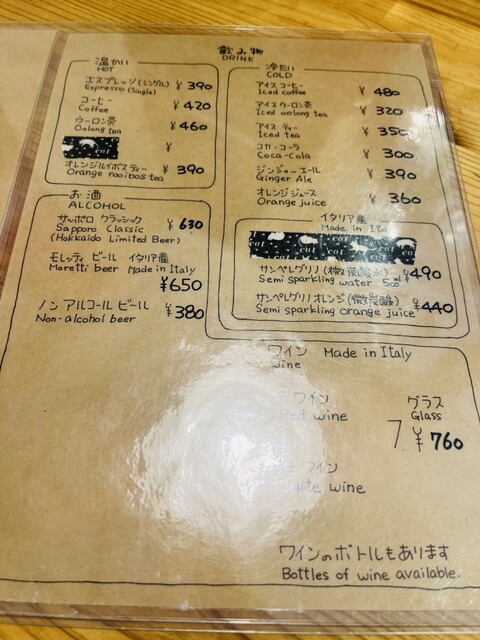 飲み物
DRINK
温かい
HOT
エスプレッソ(シングル) ¥390
Espresso (Single)
コーヒー ¥420
Coffee
ウーロン茶 ¥460
Oolong tea
¥
オレンジルイボスティー ¥390
Orange rooibos tea
冷たい
COLD
アイスコーヒー ¥480
Iced coffee
アイスウーロン茶 ¥320
Iced oolong tea
アイスティー ¥350
Iced tea
コカ・コーラ ¥300
Coca-Cola
ジンジャーエール ¥390
Ginger Ale
オレンジジュース ¥360
Orange juice
イタリア産
Made in
cat cat cat
サンペレグリノ(微炭酸水) ¥490
Semi sparkling water 500ml
サンペレグリノオレンジ(微炭酸) ¥440
Semi sparkling orange juice
お酒
ALCOHOL
サッポロ クラッシック ¥630
Sapporo Classic
(Hokkaido Limited Beer)
モレッティ ビール イタリア産
Moretti beer Made in Italy
¥650
ノンアルコール ビール ¥380
Non-alcohol beer
ワイン Made in Italy
Wine
ワイン
wine
グラス
Glass
¥760
ワイン
wine
ワインのボトルもあります
Bottles of wine available.